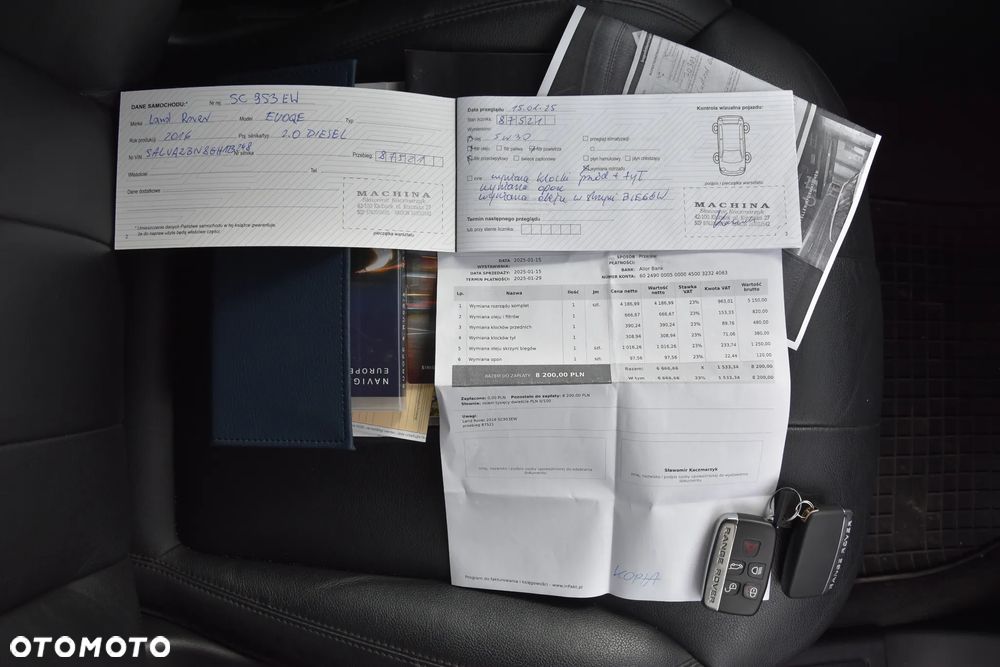 DANE SAMOCHODU:*
Nr rej. SC 953 EW
Marka Land Rover Model EVOQE Typ
Rok produkcji 2016 Poj. silnika/typ 2.0 DIESEL
Nr VIN Nr silnika Przebieg: 87521
Właściciel Tel.
Dane dodatkowe
MACHINA
Sławomir Kaczmarzyk
pieczątka warsztatu
* Umieszczenie danych Państwa samochodu w tej książce gwarantuje,
że do napraw użyte będą właściwe części.
2
Data przeglądu 15.01.25
Kontrola wizualna pojazdu:
Stan licznika 87521
Wymieniono:
olej 5W30 przegląd klimatyzacji
filtr oleju filtr paliwa filtr powietrza
filtr przeciwpyłkowy świece zapłonowe płyn hamulcowy płyn chłodzący
inne wymiana rozrządu
wymiana klocki przód + tył
wymiana opon
wymiana oleju w skrzyni BIEGÓW
podpis i pieczątka warsztatu
MACHINA
Sławomir Kaczmarzyk
Termin następnego przeglądu
lub przy stanie licznika:
3
DATA WYSTAWIENIA: 2025-01-15
DATA SPRZEDAŻY: 2025-01-15
TERMIN PŁATNOŚCI: 2025-01-29
SPOSÓB PŁATNOŚCI: Przelew
BANK: Alior Bank
NUMER KONTA: 60 2490 0005 0000 4500 3232 4083
Lp. Nazwa Ilość Jm Cena netto Wartość netto Stawka VAT Kwota VAT Wartość brutto
1 Wymiana rozrządu komplet 1 szt. 4 186,99 4 186,99 23% 963,01 5 150,00
2 Wymiana oleju i filtrów 1 666,67 666,67 23% 153,33 820,00
3 Wymiana klocków przednich 1 390,24 390,24 23% 89,76 480,00
4 Wymiana klocków tył 1 308,94 308,94 23% 71,06 380,00
5 Wymiana oleju skrzyni biegów 1 1 016,26 1 016,26 23% 233,74 1 250,00
6 Wymiana opon 1 szt. 97,56 97,56 23% 22,44 120,00
Razem: 6 666,66 X 1 533,34 8 200,00
W tym: 6 666,66 23% 1 533,34 8 200,00
RAZEM DO ZAPŁATY: 8 200,00 PLN
Zapłacono: 0,00 PLN Pozostało do zapłaty: 8 200,00 PLN
Słownie: osiem tysięcy dwieście PLN 0/100
Uwagi:
Land Rover 2016 SC953EW
przebieg 87521
Sławomir Kaczmarzyk
imię, nazwisko i podpis osoby upoważnionej do odebrania
dokumentu
imię, nazwisko i podpis osoby upoważnionej do wystawienia
dokumentu
KOPIA
Program do fakturowania i księgowości - www.infakt.pl
NAVIG
EUROPE
RANGE ROVER
RANGE ROVER
OTOMOTO